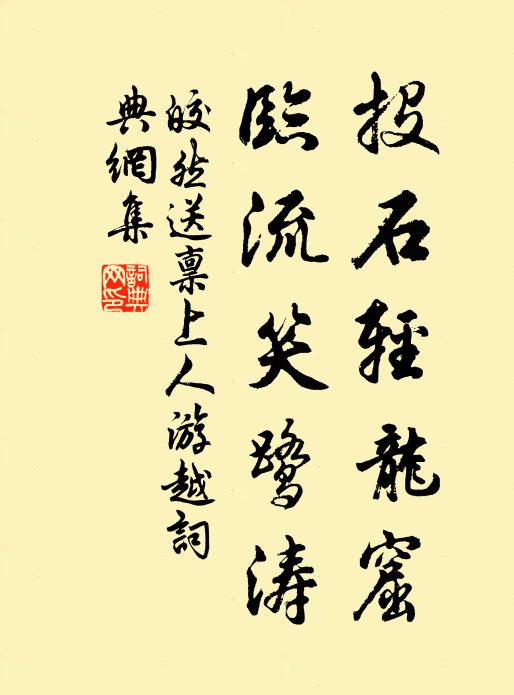 投石輕龍窟
臨流笑鷺濤
皎然送禀上人游越詞
典網集
詞典网印